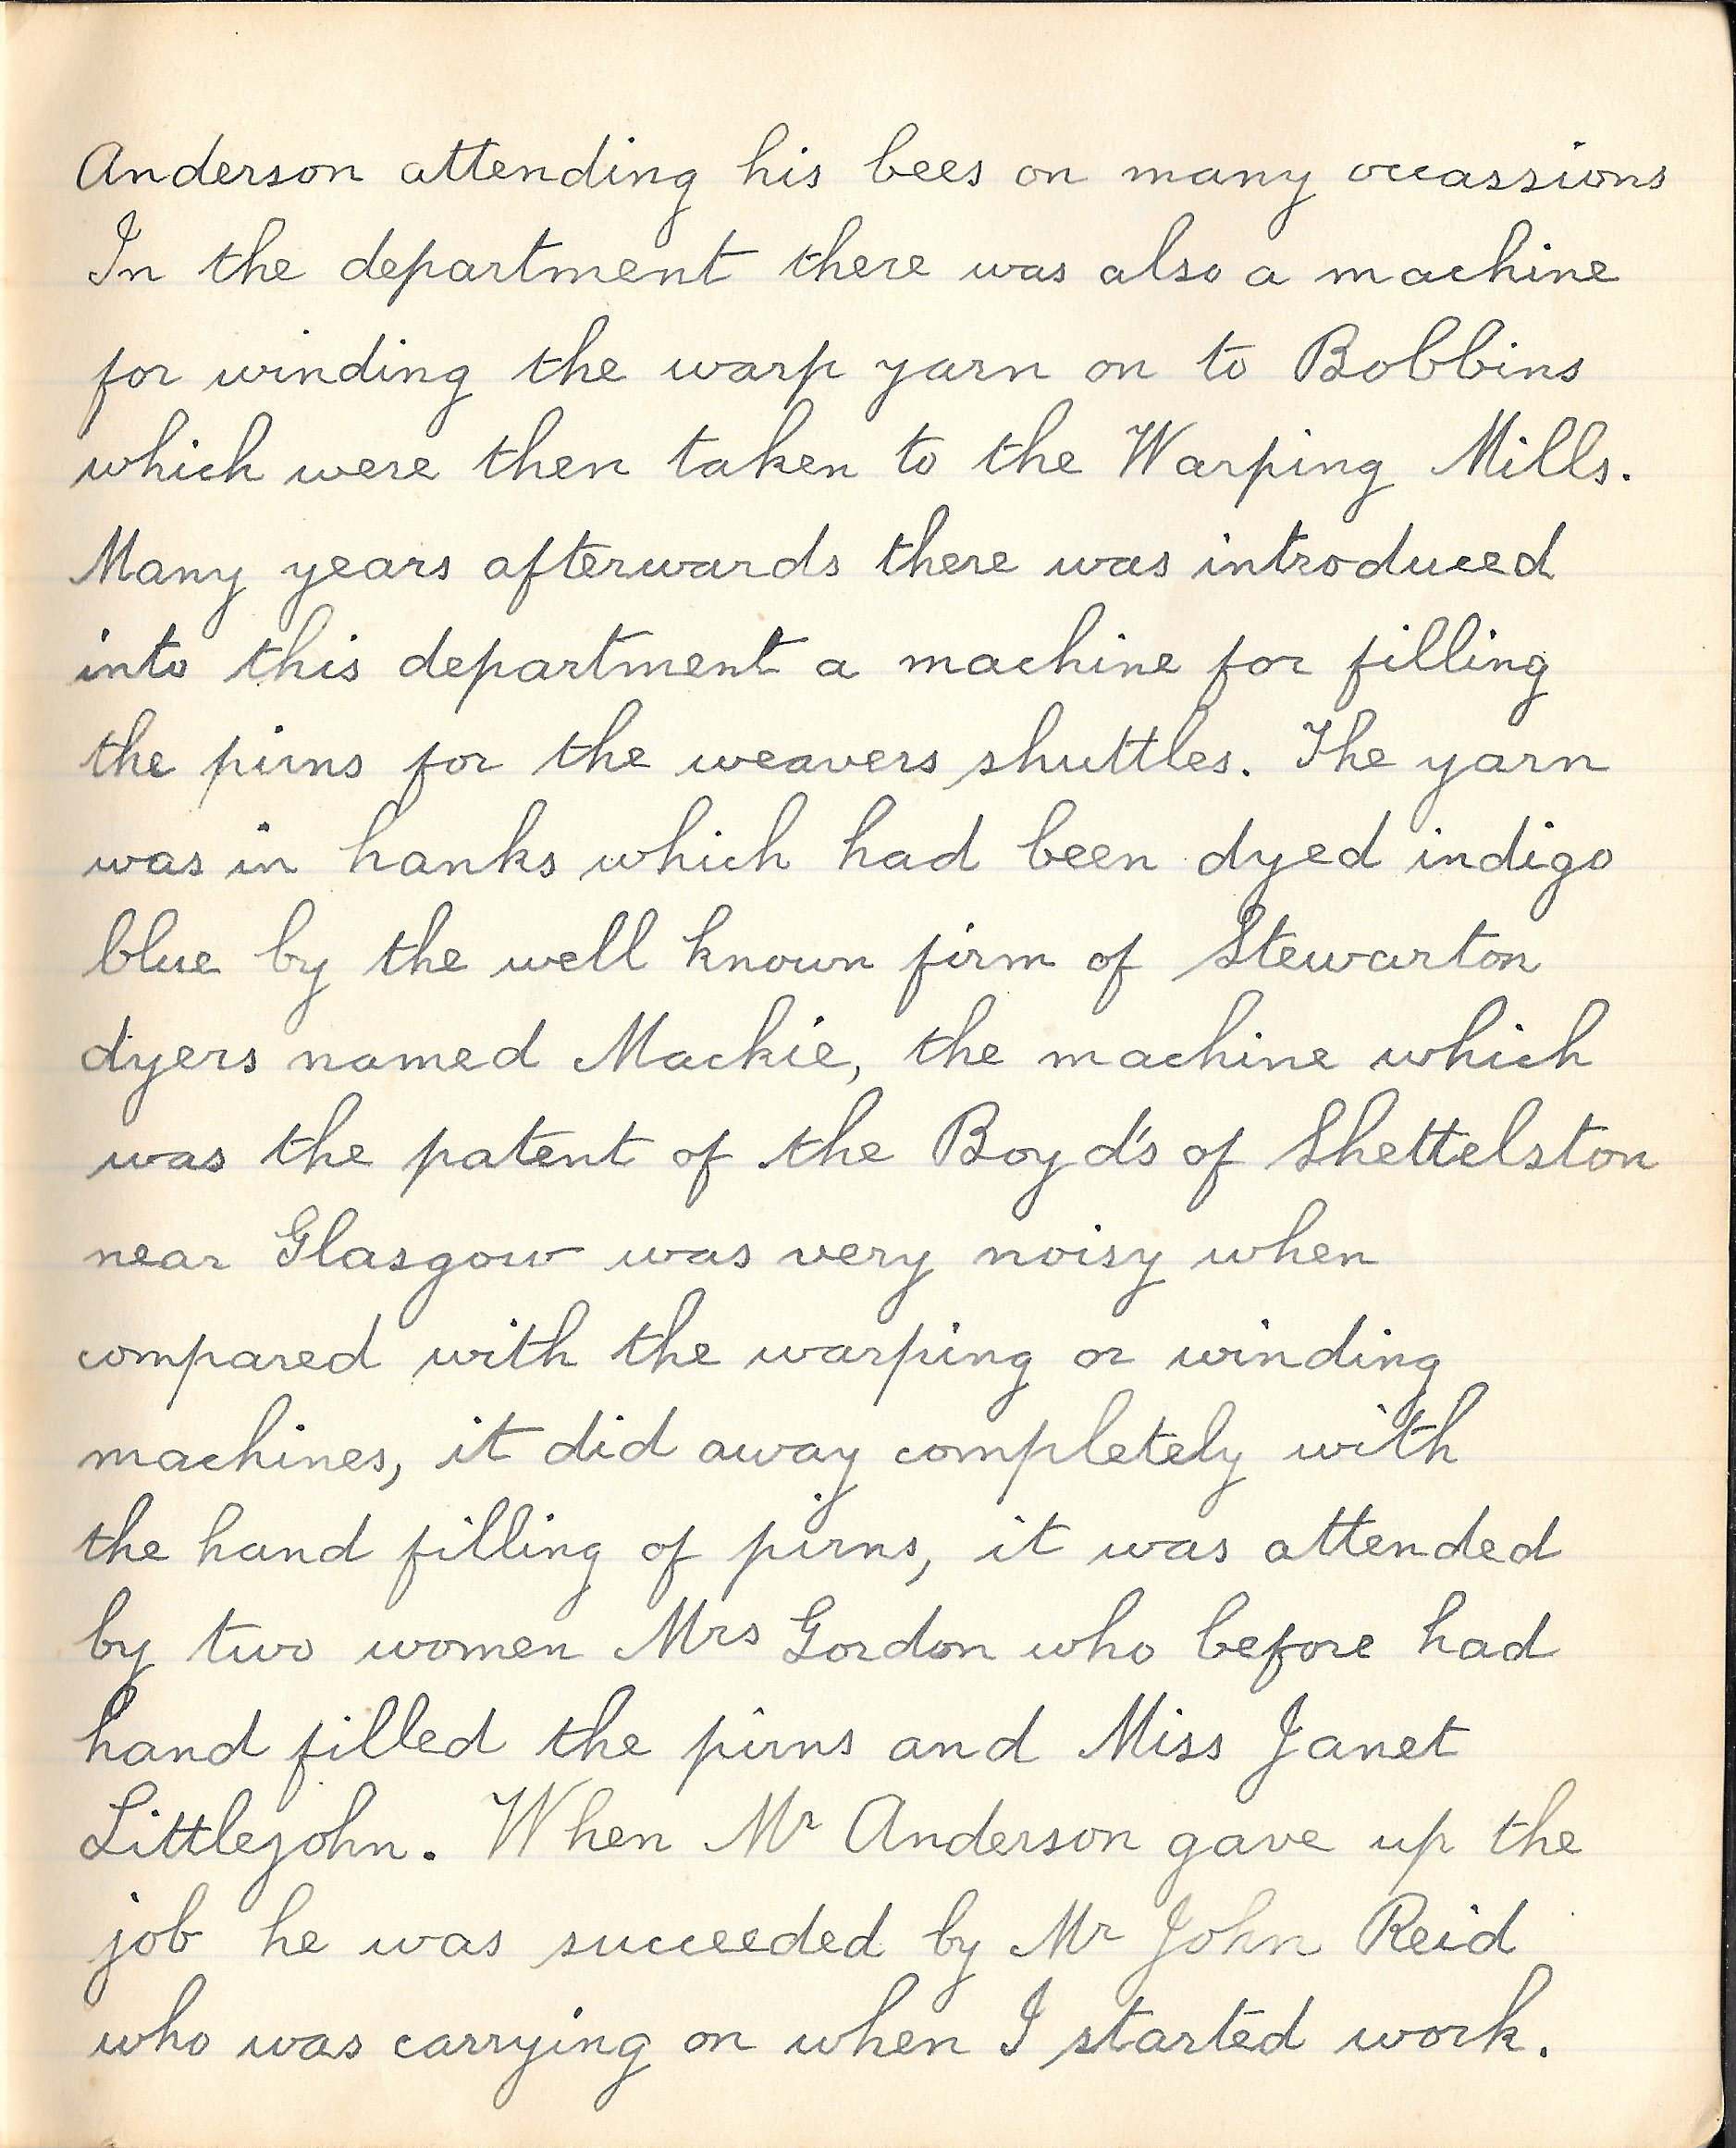 Anderson attending his bees on many occassions
In the department there was also a machine
for winding the warp yarn on to Bobbins
which were then taken to the Warping Mills.
Many years afterwards there was introduced
into this department a machine for filling
the pirns for the weavers shuttles. The yarn
was in hanks which had been dyed indigo
blue by the well known firm of Stewarton
dyers named Mackie, the machine which
was the patent of the Boyd's of Shettelston
near Glasgow was very noisy when
compared with the warping or winding
machines, it did away completely with
the hand filling of pirns, it was attended
by two women Mrs Gordon who before had
hand filled the pirns and Miss Janet
Littlejohn. When Mr Anderson gave up the
job he was succeeded by Mr John Reid
who was carrying on when I started work.